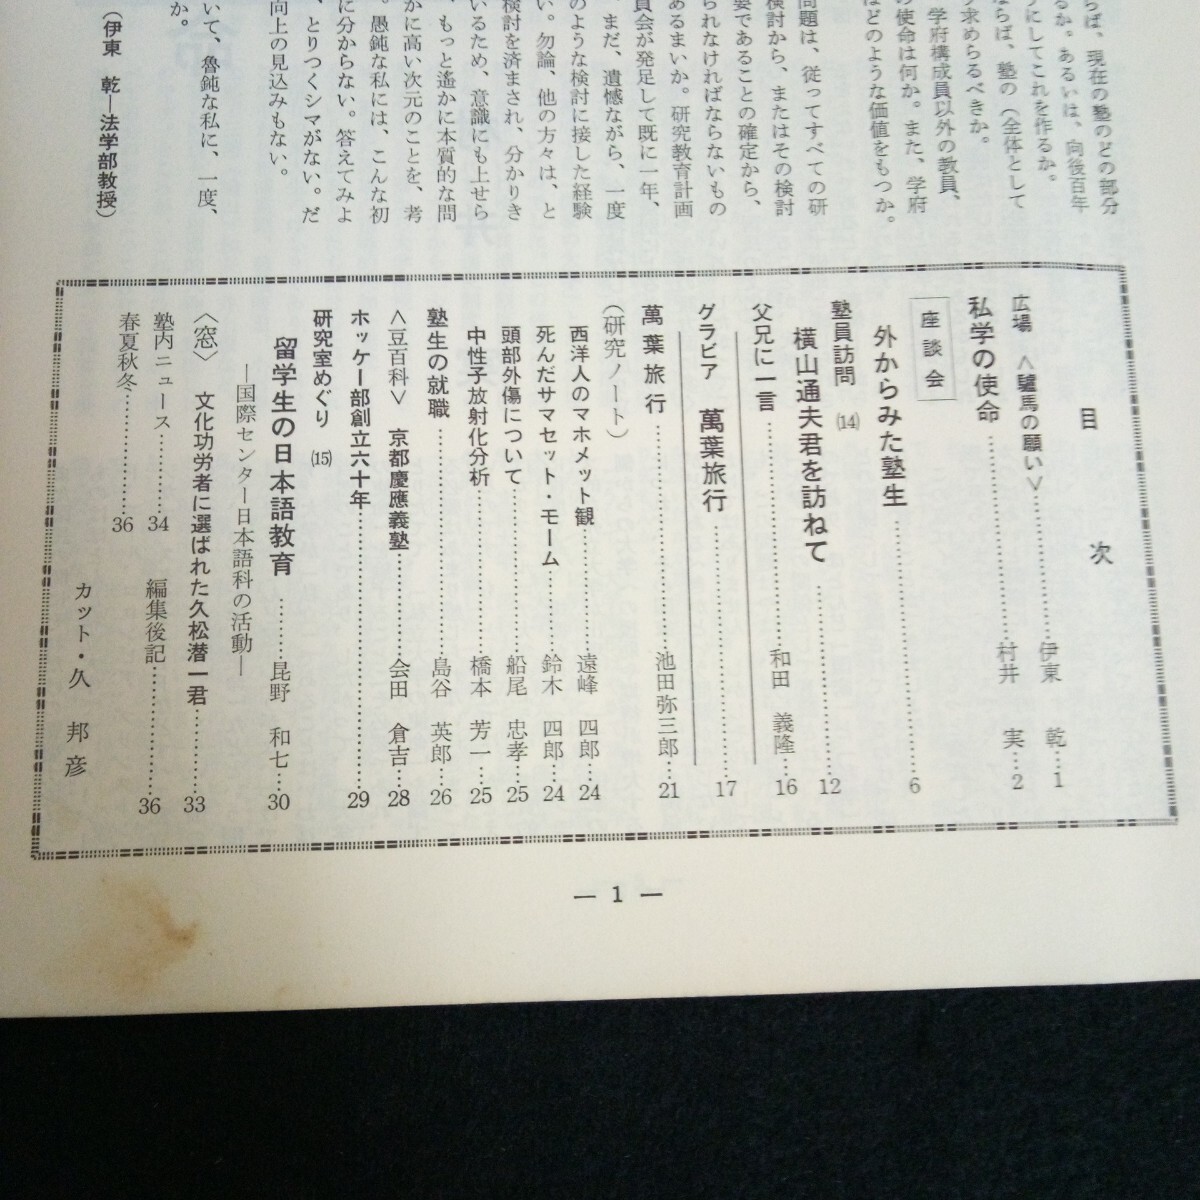 らば、現在の塾のどの部分
るか。あるいは、向後百年
うにしてこれを作るか。
ならば、塾の（全体として
り求めらるべきか。
学府構成員以外の教員、
の使命は何か。また、学府
はどのような価値をもつか。
問題は、従ってすべての研
検討から、またはその検討
要であることの確定から、
られなければならないもの
あるまいか。研究教育計画
員会が発足して既に一年、
、まだ、遺憾ながら、一度
のような検討に接した経験
い。勿論、他の方々は、と
検討を済まされ、分かりき
いるため、意識にも上せら
、もっと遙かに本質的な問
かに高い次元のことを、考
。愚鈍な私には、こんな初
に分からない。答えてみよ
、とりつくシマがない。だ
向上の見込みもない。
いて、魯鈍な私に、一度、
か。
（伊東　乾―法学部教授）
目　次
広場　＜驢馬の願い＞……伊東　乾…1
私学の使命……村井　実…2
座談会
外からみた塾生……6
塾員訪問　(14)
横山通夫君を訪ねて……12
父兄に一言……和田　義隆…16
グラビア　萬葉旅行……17
萬葉旅行……池田弥三郎…21
（研究ノート）
西洋人のマホメット観……遠峰　四郎…24
死んだサマセット・モーム……鈴木　四郎…24
頭部外傷について……船尾　忠孝…25
中性子放射化分析……橋本　芳一…25
塾生の就職……島谷　英郎…26
＜豆百科＞　京都慶應義塾……会田　倉吉…28
ホッケー部創立六十年……29
研究室めぐり　(15)
留学生の日本語教育……昆野　和七…30
―国際センター日本語科の活動―
〈窓〉　文化功労者に選ばれた久松潜一君……33
塾内ニュース……34　編集後記……36
春夏秋冬……36
カット・久　邦彦
― 1 ―